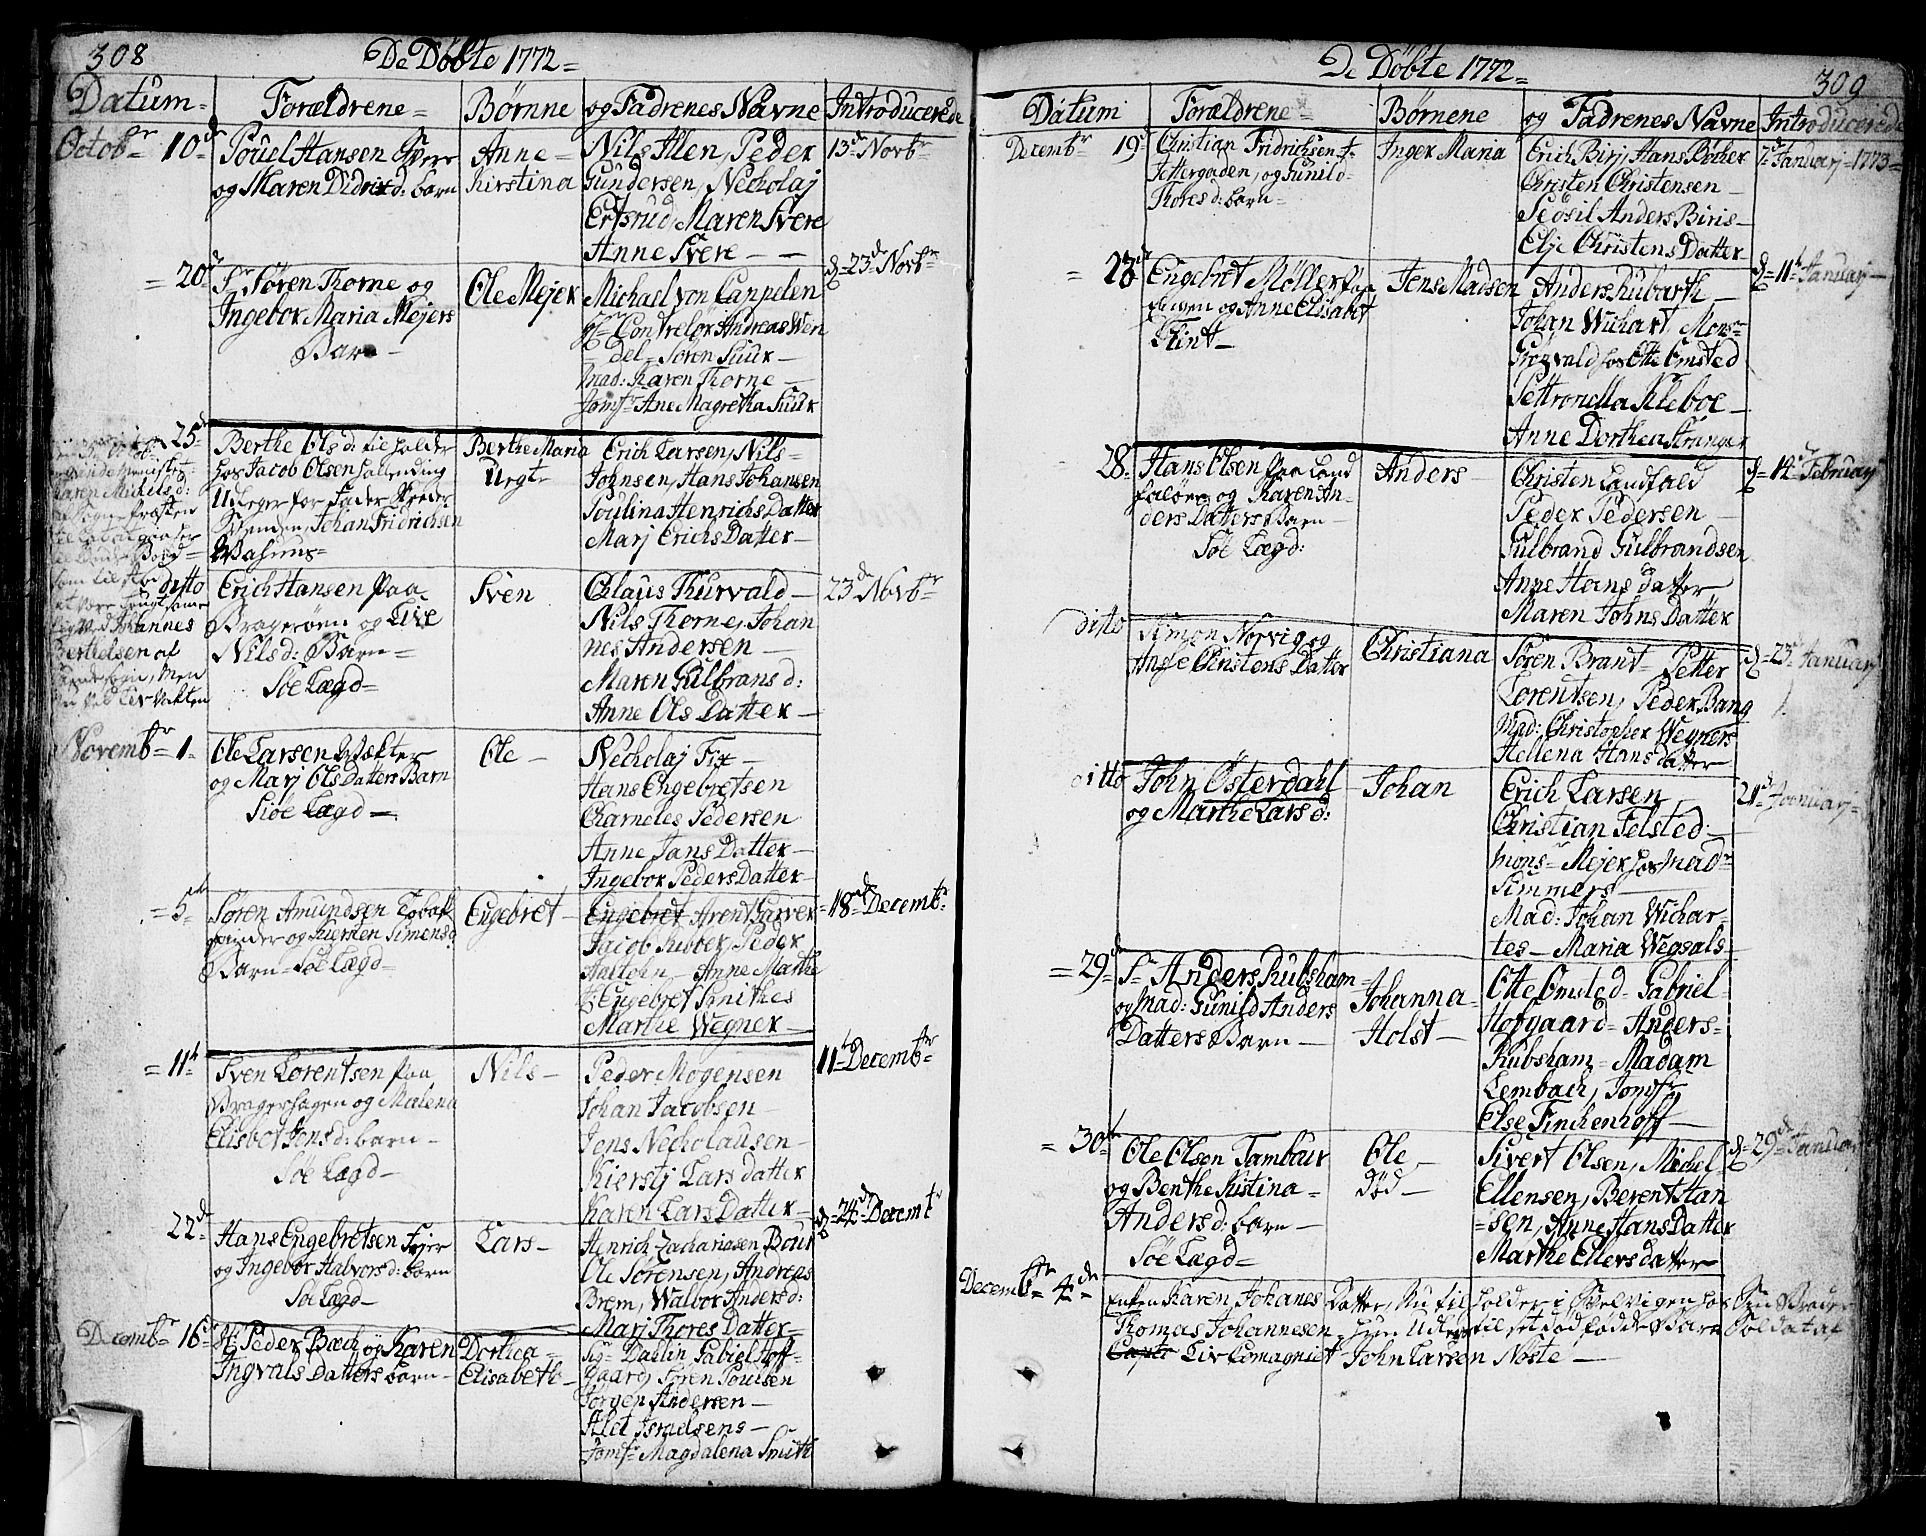 308
De Döbte 1772=
Datum=
Forældrene=
Børnne
og Fadrenes Navne
Introducerede
Octobr= 10de
Pouel Hansen Svere
og Maren Didrixd: barn
Anne=
Kirstina
Nils Allen, Peder
Gundersen, Necholaj
Ertsrud, Maren Svere
Anne Svere
13de Novbr
= 20de
Sr Søren Thorne og
Ingebor Maria Mejers
Barn
Ole Mejer
Michael von Cappelen
Hr Contrelør Andreas Wen
del= Søren Suur
Mad: Karen Thorne
Jomfr Ane Magretha Suur
d= 23de Novbr
25de
Berthe Ols d: til holder
hos Jacob Olsen
Udleger for Fader
Johan Fridrichsen
Berthe Maria
Uegte
Erich Larsen, Nils
Johnsen, Hans Johansen
Poulina Henrichs Datter
Marj Erichs Datter
Karen Michels d:
Johannes
Berthelsen af
ditto
Erich Hansen paa
Bragerøen og Live
Nils d: Barn=
Søe Lægd=
Sven
Claus Thurvald
Nils Thorne, Johan
nes Andersen
Maren Gulbrans d:
Anne Ols Datter
23de Novbr
Novembr= 1.
Ole Larsen Wekter
og Marj Ols Datters Barn
Siöe Lægd
Ole
Necholaj Fix
Hans Engebretsen
Charneles Pedersen
Anne Jans Datter
Ingebor Peders Datter
= 5te
Søren Amundsen Tobak
spinder og Kiersten Simens d
Barn= Søe Lægd=
Engebret
Engebret Arent Garver
Jacob Suster, Peder
Anne Marthe
Engebret Smithes
Marthe Wegner
18de Decembr
= 11te
Sven Lorentsen paa
Bragerhagen og Malena
Elisbet Jens d: barn
Søe Lægd
Nils
Peder Mogensen
Johan Jacobsen
Jens Necholausen
Kierstj Lars datter
Karen Lars Datter
11te Decembr
22de
Hans Engebretsen Fejer
og Ingebor Halvors d: barn
Søe Lægd
Lars
Henrich Zachariasen Bour
Ole Sørensen, Andreas
Brem, Walbor Anders d:
Marj Thores Datter
d= 24de Decemt
Decembr 16de
Hr Peder Bæch og Karen
Ingvals Datters barn
Dorthea
Elisabeth
Sr Dahlin Gabiel Hoff
gaard, Søren Poulsen
Jørgen Andersen
Alet Israelsens
Jomfr Magdalena Smith
De Döbte 1772=
309
Datum
Forældrene=
Børnene
og Fadrenes Navne
Introducerede
Decembr 19de
Christian Fridrichsen i
Tettergaden, og Gunild
Thores d: barn
Inger Maria
Erich Birj, Hans Bøcher
Christen Christensen
Sedsil Anders Biris
Elje Christens Datter
1de Januarj 1773
= 23de
Engebret Møller paa
og Anne Elisabet
Flint
Jens Madsen
Anders Kubarth
Johan Wichart Mons
Gregvald hos Otte Omsted
Pettronella Kleboe
Anne Dorthea Stranger
d= 11te Januarj
28de
Hans Olsen paa Land
faløen og Karen An
ders Datters Barn
Søe Lægd:
Anders
Christen Landfald
Peder Pedersen
Gulbrand Gulbrandsen
Anne Hans datter
Maren Johns Datter
d= 14de Februarj
ditto
Simon Norvig og
Anne Christens Datter
Christiana
Søren Brant Petter
Lorentsen, Peder Bang
Mad: Christopher Wegners
Hellena Hans datter
d= 23de Januarj
ditto
John Østerdahl
og Marthe Lars d:
Johan
Erich Larsen
Christian Felsted
Mons= Mejer hos Mad
Simmers
Mad: Johan Wichar-
tes Maria Wegsals
21de Januarj
= 29de
Sr Anders Kubsham
og Mad: Gunild Anders
Datters Barn
Johanna
Holst
Otte Omsted Gabriel
Hofgaard Anders
Kubsham Madam
Lembach, Jomfr
Else Finckenhoff
= 30te
Ole Olsen Tambour
og Benthe Kistina
Anders d: barn
Søe Lægd=
Ole
Død
Sivert Olsen, Michel
Ellensen, Berent Han
sen, Anne Hans Datter
Marthe Ellers datter
d= 29de Januarj
Decembr 4de
Enken Karen Johanes Datter, Nu til holder i Svelvigen hos Sin Broder
Thomas Johannesen, Hun Udlegger til set død fødde Barn Soldat af
Capte Liv Comagniet John Larsen Noste